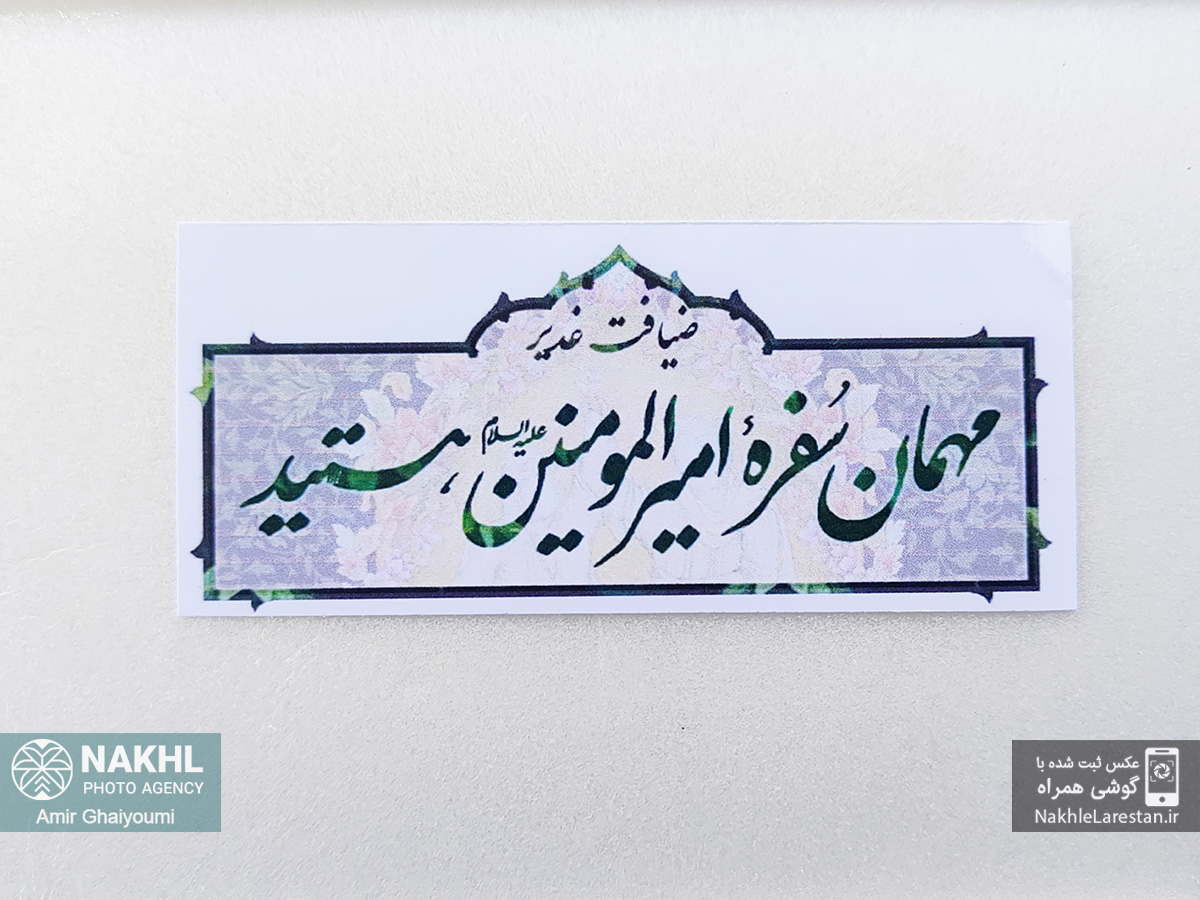 ضیافت غدیر
مهمان سُفرهٔ امیرالمومنین علیه‌السلام هستید
NAKHL
PHOTO AGENCY
Amir Ghaiyoumi
عکس ثبت شده با
گوشی همراه
NakhleLarestan.ir